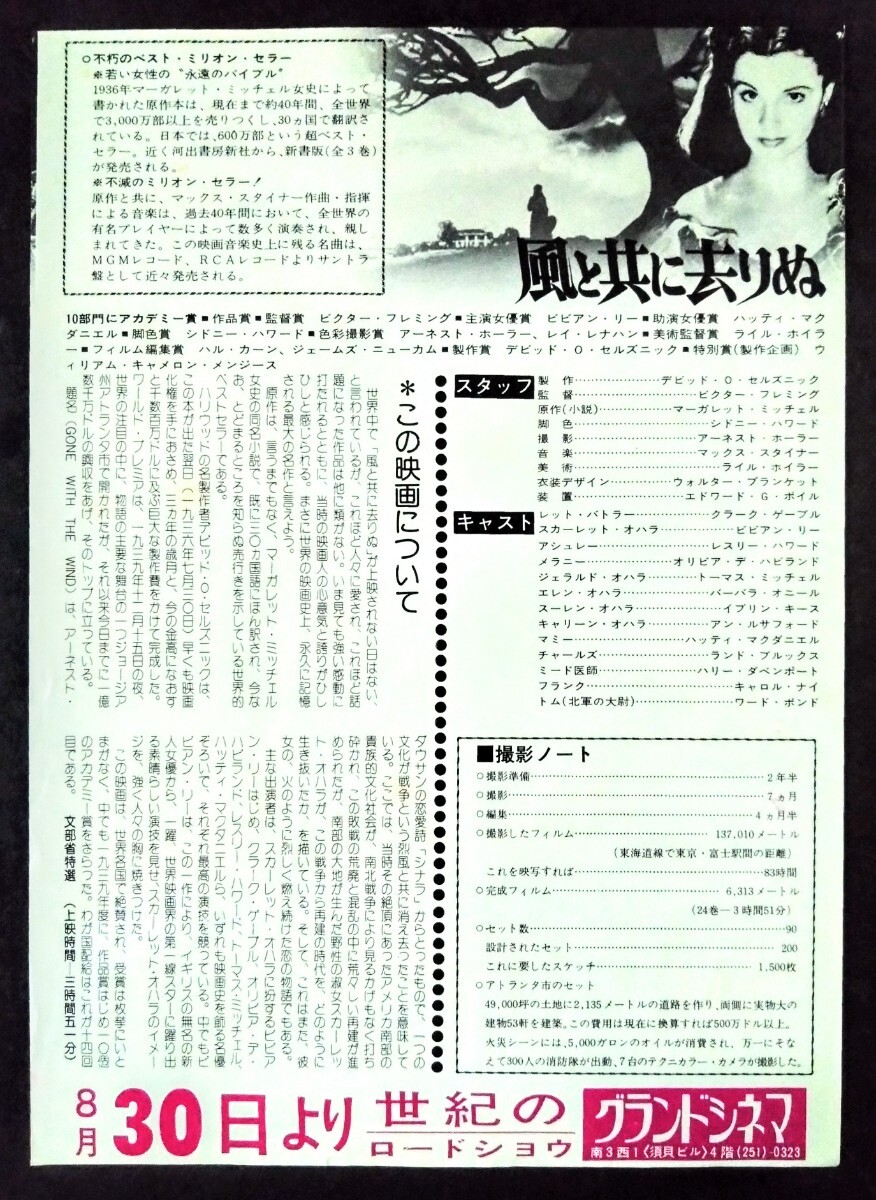 ○不朽のベスト・ミリオン・セラー
※若い女性の〝永遠のバイブル〟
1936年マーガレット・ミッチェル女史によって
書かれた原作本は、現在まで約40年間、全世界
で3,000万部以上を売りつくし、30ヵ国で翻訳さ
れている。日本では、600万部という超ベスト・
セラー。近く河出書房新社から、新書版(全3巻)
が発売される。
※不滅のミリオン・セラー!
原作と共に、マックス・スタイナー作曲・指揮
による音楽は、過去40年間において、全世界の
有名プレイヤーによって数多く演奏され、親し
まれてきた。この映画音楽史上に残る名曲は、
MGMレコード、RCAレコードよりサントラ
盤として近々発売される。
風と共に去りぬ
10部門にアカデミー賞■作品賞■監督賞 ビクター・フレミング■主演女優賞 ビビアン・リー■助演女優賞 ハッティ・マク
ダニエル■脚色賞 シドニー・ハワード■色彩撮影賞 アーネスト・ホーラー、レイ・レナハン■美術監督賞 ライル・ホイラ
ー■フィルム編集賞 ハル・カーン、ジェームズ・ニューカム■製作賞 デビッド・O・セルズニック■特別賞(製作企画) ウ
ィリアム・キャメロン・メンジース
*この映画について
世界中で「風と共に去りぬ」が上映されない日はない、
と言われているが、これほど人々に愛され、これほど話
題になった作品は他に類がない。いま見ても強い感動に
打たれるとともに、当時の映画人の心意気と誇りがひし
ひしと感じられる。まさに世界の映画史上、永久に記憶
される最大の名作と言えよう。
原作は、言うまでもなく、マーガレット・ミッチェル
女史の同名小説で、既に三〇ヵ国語にほん訳され、今な
お、とどまるところを知らぬ売行きを示している世界的
ベストセラーである。
ハリウッドの名製作者デビッド・O・セルズニックは、
この本が出た翌日(一九三六年七月三〇日)早くも映画
化権を手におさめ、三ヵ年の歳月と、今の金高になおす
と千数百万ドルに及ぶ巨大な製作費をかけて完成した。
ワールド・プレミアは、一九三九年十二月十五日の夜、
世界の注目の中に、物語の主要な舞台の一つジョージア
州アトランタ市で開かれたが、それ以来今日までに一億
数千万ドルの興収をあげ、そのトップに立っている。
題名(GONE WITH THE WIND)は、アーネスト・
ダウサンの恋愛詩「シナラ」からとったもので、一つの
文化が戦争という烈風と共に消え去ったことを意味して
いる。ここでは、当時その絶頂にあったアメリカ南部の
貴族的文化社会が、南北戦争により見るかげもなく打ち
砕かれ、この敗戦の荒廃と混乱の中に荒々しい再建が進
められたが、南部の大地が生んだ野性の淑女スカーレッ
ト・オハラが、この戦争から再建の時代を、どのように
生き抜いたか、を描いている。そして、これはまた、彼
女の、火のように烈しく燃え続けた恋の物語でもある。
主な出演者は、スカーレット・オハラに扮するビビア
ン・リーはじめ、クラーク・ゲーブル、オリビア・デ・
ハビランド、レスリー・ハワード、トーマス・ミッチェル、
ハッティ・マクダニエルら、いずれも映画史を飾る名優
ぞろいで、それぞれ最高の演技を競っている。中でもビ
ビアン・リーは、この一作により、イギリスの無名の新
人女優から、一躍、世界映画界の第一線スターに躍り出
る素晴らしい演技を見せ「スカーレット・オハラのイメー
ジを、強く人々の胸に焼きつけた。
この映画は、世界各国で絶賛され、受賞は枚挙にいと
まがなく、中でも一九三九年度に、作品賞はじめ一〇個
のアカデミー賞をさらった。わが国配給はこれが十四回
目である。 文部省特選 (上映時間―三時間五一分)
スタッフ
製作……デビッド・O・セルズニック
監督……ビクター・フレミング
原作(小説)……マーガレット・ミッチェル
脚色……シドニー・ハワード
撮影……アーネスト・ホーラー
音楽……マックス・スタイナー
美術……ライル・ホイラー
衣装デザイン……ウォルター・プランケット
装置……エドワード・G・ボイル
キャスト
レット・バトラー……クラーク・ゲーブル
スカーレット・オハラ……ビビアン・リー
アシュレー……レスリー・ハワード
メラニー……オリビア・デ・ハビランド
ジェラルド・オハラ……トーマス・ミッチェル
エレン・オハラ……バーバラ・オニール
スーレン・オハラ……イブリン・キース
キャリーン・オハラ……アン・ルサフォード
マミー……ハッティ・マクダニエル
チャールズ……ランド・ブルックス
ミード医師……ハリー・ダベンポート
フランク……キャロル・ナイ
トム(北軍の大尉)……ワード・ボンド
■撮影ノート
○撮影準備……2年半
○撮影……7ヵ月
○編集……4ヵ月半
○撮影したフィルム……137,010メートル
(東海道線で東京・富士駅間の距離)
これを映写すれば……83時間
○完成フィルム……6,313メートル
(24巻―3時間51分)
○セット数……90
設計されたセット……200
これに要したスケッチ……1,500枚
○アトランタ市のセット
49,000坪の土地に2,135メートルの道路を作り、両側に実物大の
建物53軒を建築。この費用は現在に換算すれば500万ドル以上。
火災シーンには、5,000ガロンのオイルが消費され、万一にそな
えて300人の消防隊が出動、7台のテクニカラー・カメラが撮影した。
8月30日より
世紀の
ロードショウ
グランドシネマ
南3西1〈須貝ビル〉4階(251)-0323